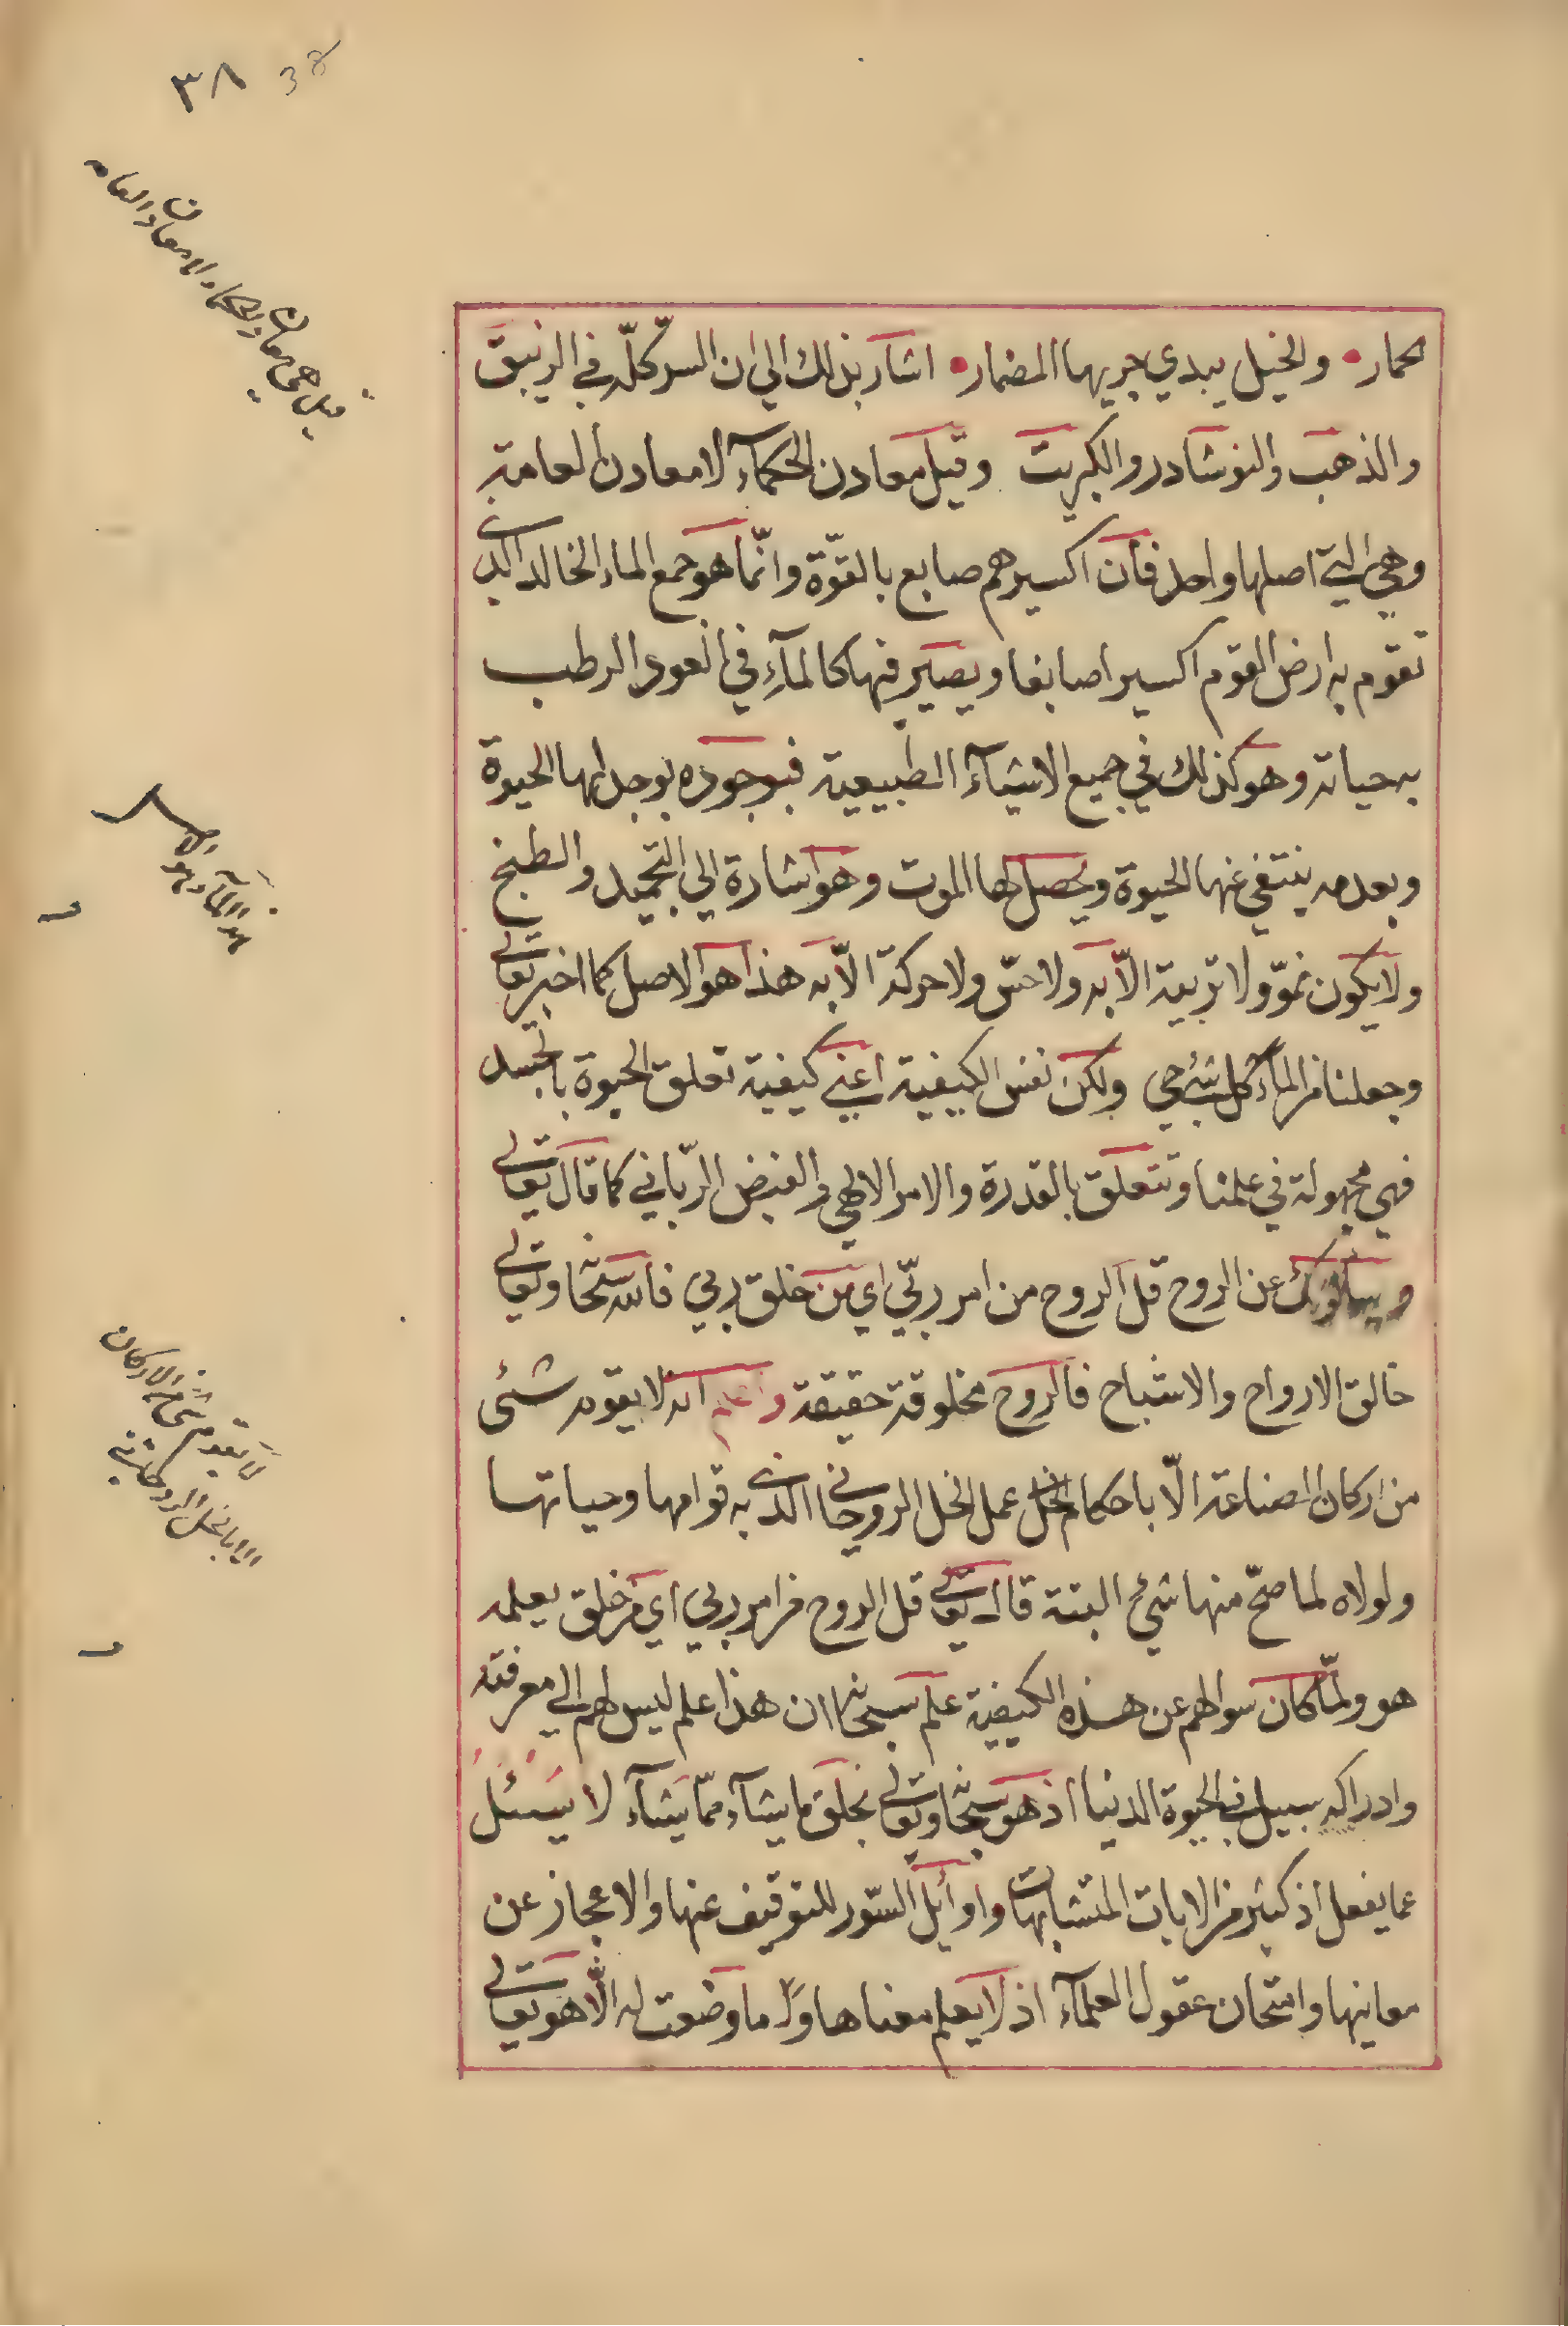 ٣٨ 38
حمار • والخيل يبدي جريها المضمار • اشار بذلك الي ان السرّ كلّه في الزيبق
والذهب والنوشادر والكبريت وقيل معادن الحكمآء لا معادن العامة
وهي التي اصلها واحد فان اكسيرهم صابغ بالقوّة وانّما هو جمع الماء الخالد الذي
تقوم به ارض القوم اكسيرا صابغا ويصير فيها كالمآءِ في العود الرطب
به حياته وهو كذلك في جميع الاشيآء الطبيعية فبوجوده يوجد لها الحيوة
وبعدمه ينتفي عنها الحيوة ويحصل لها الموت وهو اشارة الي التجميد والطبخ
ولا يكون نموّ ولا تربية الّا به ولا حسّ ولا حركة الّا به هذا هو الاصل كما اخبر تعالى
وجعلنا من المآء كل شئ حي ولكن نفس الكيفية اعني كيفية تعلق الحيوة بالجسد
فهي مجهولة في علمنا وتتعلق بالقدرة والامر الالهي والفيض الربّاني كما قال تعالى
ويسألونك عن الروح قل الروح من امر ربّي اي من خلق ربي فالله سبحانه وتعالى
خالق الارواح والاشباح فالروح مخلوقة حقيقة واعلم انه لا يقوم شئى
من اركان الصناعة الّا باحكام الخل عمل الخل الروحاني الذي به قوامها وحياتها
ولولاه لما صحّ منها شئ البتة قال تعالى قل الروح من امر ربي اي من خلق يعلمه
هو ولمّا كان سوالهم عن هذه الكيفية علم سبحانه ان هذا علم ليس لهم الي معرفته
وادراكه سبيل في الحيوة الدنيا اذ هو سبحانه وتعالى يخلق ما يشآء ممّا يشآء لا يُسئلُ
عما يفعل اذ كثير من الايات المتشابهات واوآيل السّور للتوقيف عنها والاعجاز عن
معانيها وامتحان عقول العلمآء اذ لا يعلم معناها ولا ما وضعت له الّا هو تعالى
قيل هي معادن الحكماء لا معادن العامه
هذا المآء هو
لا يقوم شئ من الاركان
الا بالخل الروحاني